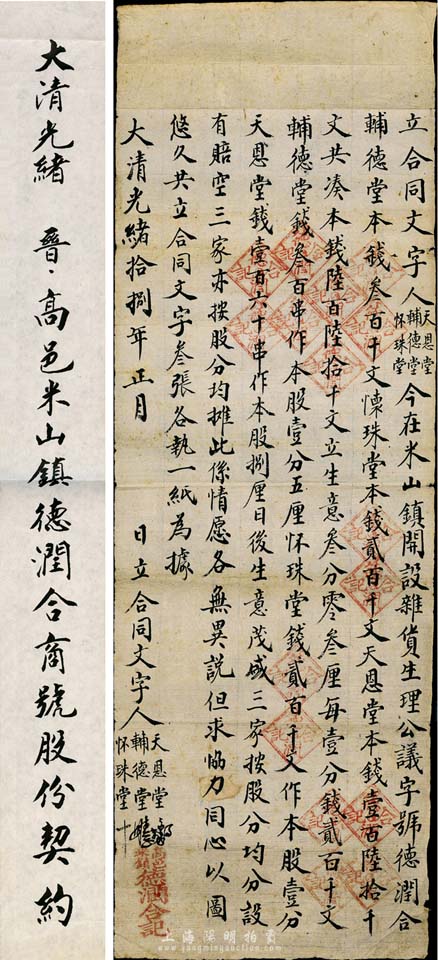 立合同文字人 天恩堂 輔德堂 怀珠堂 今在米山鎮開設雜貨生理公議字號德潤合
輔德堂本錢叁百千文懷珠堂本錢貳百千文天恩堂本錢壹百陸拾千
文共凑本錢陸百陸拾千文立生意叁分零叁厘每壹分錢貳百千文
輔德堂錢叁百串作本股壹分五厘怀珠堂錢貳百千文作本股壹分
天恩堂錢壹百六十串作本股捌厘日後生意茂盛三家按股分均分設
有賠空三家亦按股分均攤此係情愿各無異說但求協力同心以圖
悠久共立合同文字叁張各執一紙為據
大清光緒拾捌年正月 日立合同文字人 天恩堂 輔德堂 怀珠堂 十
德潤合記
大清光緒 晉·高邑米山鎮德潤合商號股份契約
上海陽明拍賣
www.yangmingauction.com